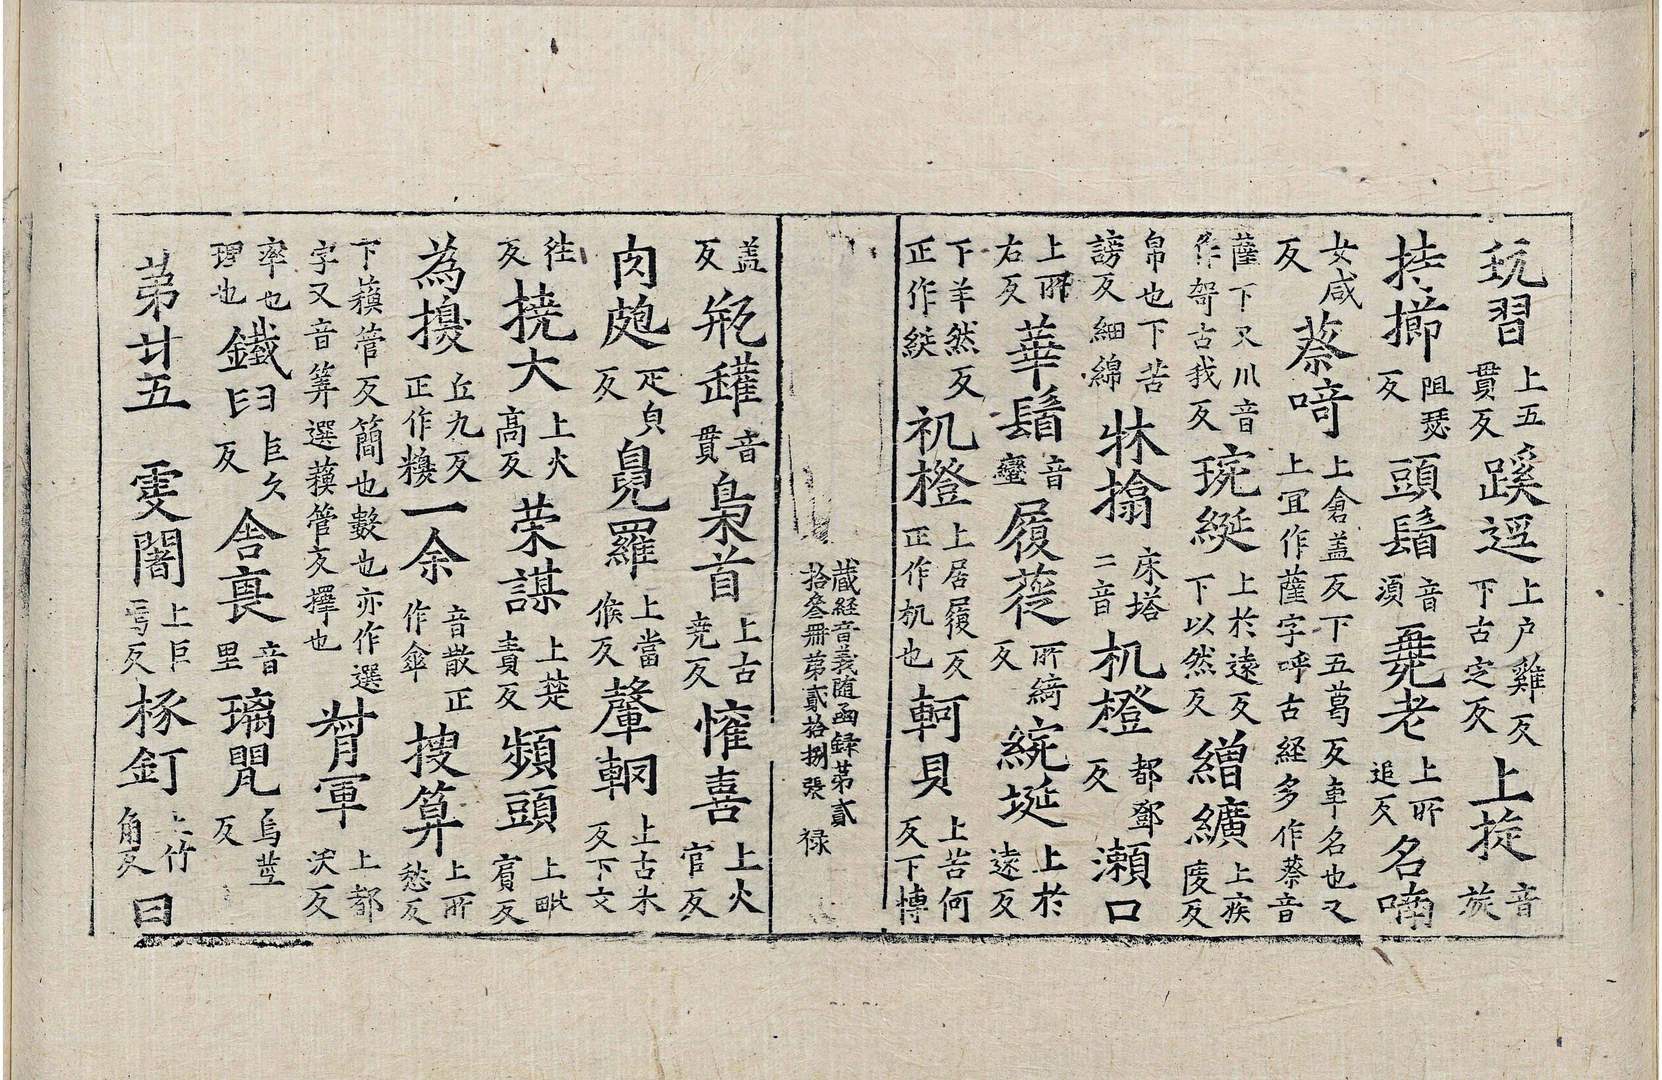 玩習上五貫反蹊逕上户雞反下古定反上㨀音旋
㧜擳阻瑟反頭鬚音須毳老上所追反名喃
女咸反蔡㖿上倉盖反下五葛反車名也又上冝作薩字呼古経多作蔡音
薩下又川音作哿古我反琬綖上於遠反下以然反繒纊上疾陵反
帛也下苦謗反細綿牀搨床塔二音机橙都鄧反瀬口
上所右反華鬘音蠻履蓰所綺反綩埏上於遠反
下羊然反正作綖礼橙上居履反正作机也軻貝上苦何反下博
藏経音義随函録第貳拾叄冊第貳拾捌張 禄
盖反瓨䍲音貫梟首上古堯反懽喜上火官反
肉皰疋皃反㲋羅上當侯反犛軻上古木反下文
徃反撓大上火髙反荣謀上楚責反頻頭上毗賔反
為擾丘九反正作糗一余音散正作傘捜算上所愁反
下蘋管反簡也數也亦作選字又音筭選蘋管反擇也㪷軍上都沃反
率也理也鐵臼巨久反舍裏音里璃甖烏莖反
第廿五雯闍上巨焉反椓釘上竹角反曰